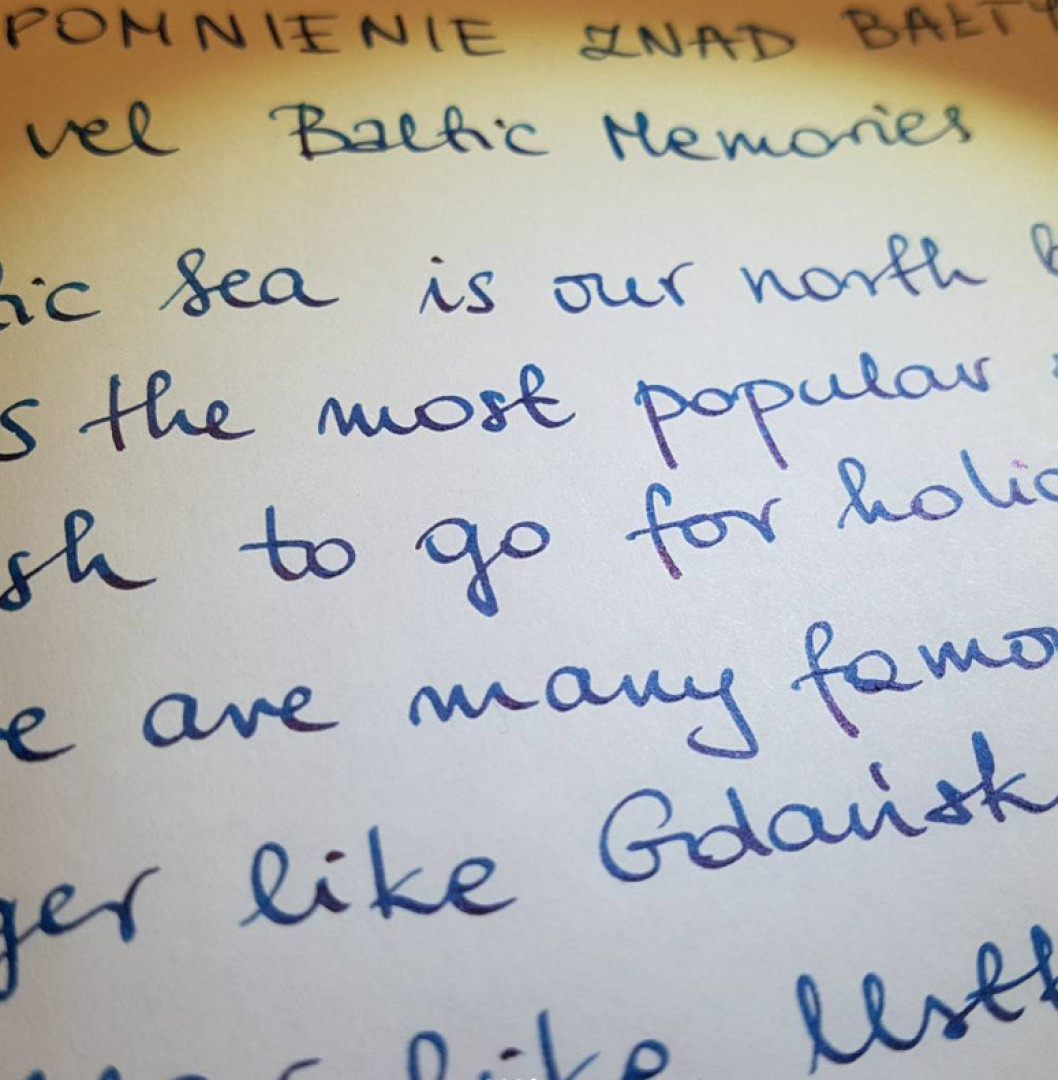 POMNIENIE ZNAD BAŁTY
vel Baltic Memories
tic Sea is our north b
s the most popular
sh to go for holid
e are many famo
ger like Gdańsk
like Ustk